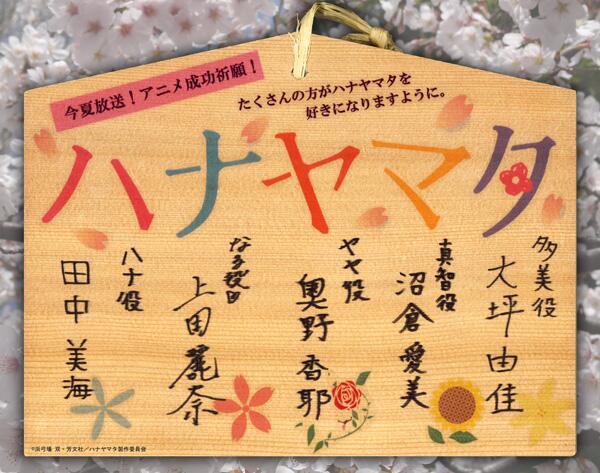 今夏放送！アニメ成功祈願！
たくさんの方がハナヤマタを
好きになりますように。
ハナヤマタ
多美役
大坪由佳
真智役
沼倉愛美
ヤヤ役
奥野香耶
なる役
上田麗奈
ハナ役
田中美海
©浜弓場 双・芳文社／ハナヤマタ製作委員会